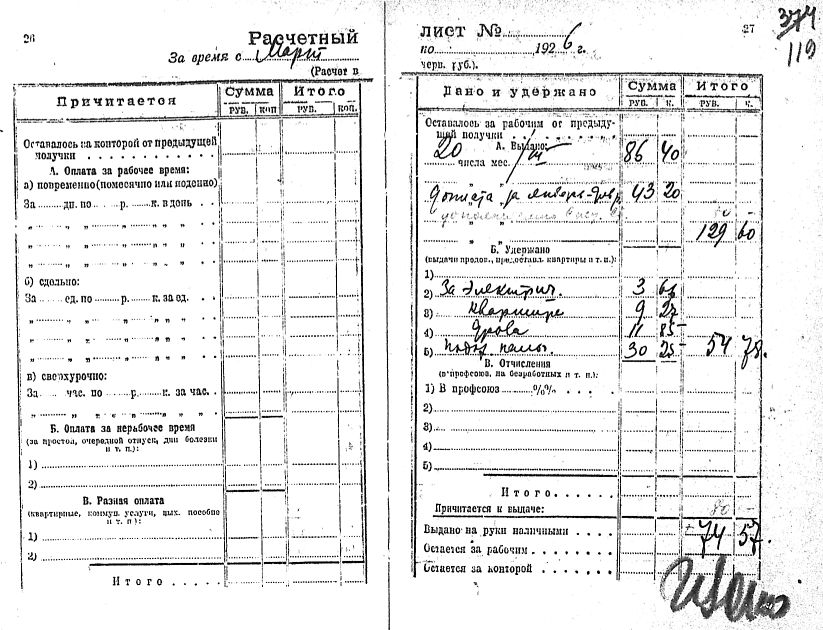 26
Расчетный
За время с Март
(Расчет в
Причитается
Сумма
Итого
РУБ.
КОП
РУБ.
КОП.
Оставалось на конторой от предыдущей
получки . . . . . . . . . . .
А. Оплата за рабочее время:
а) повременно (помесячно или поденно)
За ...... дн. по ...... р. ...... к. в день . .
" ...... " " ...... " ...... " " " . .
" ...... " " ...... " ...... " " " . .
" ...... " " ...... " ...... " " " . .
б) сдельно:
За ...... ед. по ...... р. ...... к. за ед. . .
" ...... " " ...... " ...... " " " . .
" ...... " " ...... " ...... " " " . .
" ...... " " ...... " ...... " " " . .
в) сверхурочно:
За ...... час. по ...... р. ...... к. за час. . .
" ...... " " ...... " ...... " " " .
Б. Оплата за нерабочее время
(за простои, очередной отпуск, дни болезни
и т. п.):
1)
2)
В. Разная оплата
(квартирные, коммун. услуги, вых. пособие
и т. п):
1)
2)
Итого . . . . .
ЛИСТ №
27
374
119
по ...... 1926 г.
черв. руб.).
Дано и удержано
Сумма
Итого
РУБ.
К.
РУБ.
К.
Оставалось за рабочим от предыду-
щей получки . . . . . . . .
А. Выдано:
20 числа мес. 86 40
за январь-февр 43 20
129 60
Б. Удержано
(выдачи продов., предоставл. квартиры и т. п.):
1)
2) За электрич. 3
3) квартире 9 27
4) дрова 11 85
5) 30 25 54 78.
В. Отчисления
(в профсоюз, на безработных и т. п.):
1) В профсоюз ...... %% . . . .
2)
3)
4)
5)
Итого . . . . . .
Причитается к выдаче: 80 -
Выдано на руки наличными . . . . 74 57.
Остается за рабочим . . . . . . .
Остается за конторой . . . . . . .